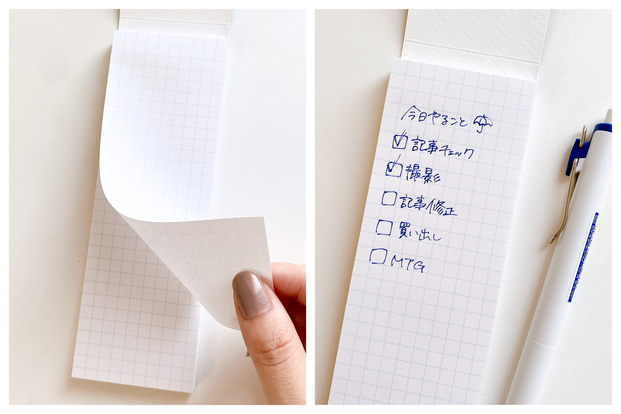 今日やること
記事チェック
撮影
記事修正
買い出し
MTG